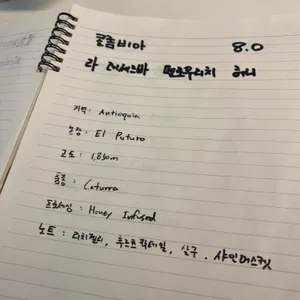 콜롬비아 8.0
라 레세르바 멜로우리치 허니
지역: Antioquia
농장: El Futuro
고도: 1,850m
품종: Caturra
프로세싱: Honey Infused
노트: 리치젤리, 후르츠칵테일, 살구, 샤인머스켓